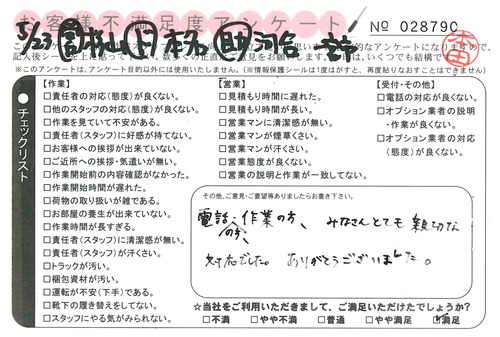 お客様不満足度アンケート
№ 028790
本田
※このアンケートは、アンケート目的以外には使用いたしません。(※情報保護シールは1度はがすと、再度貼りなおすことはできません)
チェックリスト
【作業】
□責任者の対応(態度)が良くない。
□他のスタッフの対応(態度)が良くない。
□作業を見ていて不安がある。
□責任者(スタッフ)に好感が持てない。
□お客様への挨拶が出来ていない。
□ご近所への挨拶・気遣いが無い。
□作業開始前の内容確認がなかった。
□作業開始時間が遅れた。
□荷物の取り扱いが雑である。
□お部屋の養生が出来ていない。
□作業時間が長すぎる。
□責任者(スタッフ)に清潔感が無い。
□責任者(スタッフ)が汗くさい。
□トラックが汚い。
□梱包資材が汚い。
□運転が不安(下手)である。
□靴下の履き替えをしてない。
□スタッフにやる気がみられない。
【営業】
□見積もり時間に遅れた。
□見積もり時間が長い。
□営業マンに清潔感が無い。
□営業マンが煙草くさい。
□営業マンが汗くさい。
□営業態度が良くない。
□営業の説明と作業が一致してない。
【受付・その他】
□電話の対応が良くない。
□オプション業者の説明
・作業が良くない。
□オプション業者の対応
(態度)が良くない。
その他、ご意見・ご要望等ありましたらお書き下さい。
電話の方、作業の方、みなさんとても親切な
対応でした。ありがとうございました。
☆当社をご利用いただきまして、ご満足いただけたでしょうか?
□不満 □やや不満 □普通 □やや満足 □満足